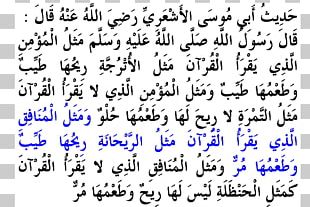 حَدِيثُ أَبِي مُوسَى الأَشْعَرِيِّ رَضِيَ اللَّهُ عَنْهُ قَالَ :
قَالَ رَسُولُ اللَّهِ صَلَّى اللَّهُ عَلَيْهِ وَسَلَّمَ مَثَلُ الْمُؤْمِنِ
الَّذِي يَقْرَأُ الْقُرْآنَ مَثَلُ الأُتْرُجَّةِ رِيحُهَا طَيِّبٌ
وَطَعْمُهَا طَيِّبٌ وَمَثَلُ الْمُؤْمِنِ الَّذِي لا يَقْرَأُ الْقُرْآنَ
مَثَلُ التَّمْرَةِ لا رِيحَ لَهَا وَطَعْمُهَا حُلْوٌ وَمَثَلُ الْمُنَافِقِ
الَّذِي يَقْرَأُ الْقُرْآنَ مَثَلُ الرَّيْحَانَةِ رِيحُهَا طَيِّبٌ
وَطَعْمُهَا مُرٌّ وَمَثَلُ الْمُنَافِقِ الَّذِي لا يَقْرَأُ الْقُرْآنَ
كَمَثَلِ الْحَنْظَلَةِ لَيْسَ لَهَا رِيحٌ وَطَعْمُهَا مُرٌّ